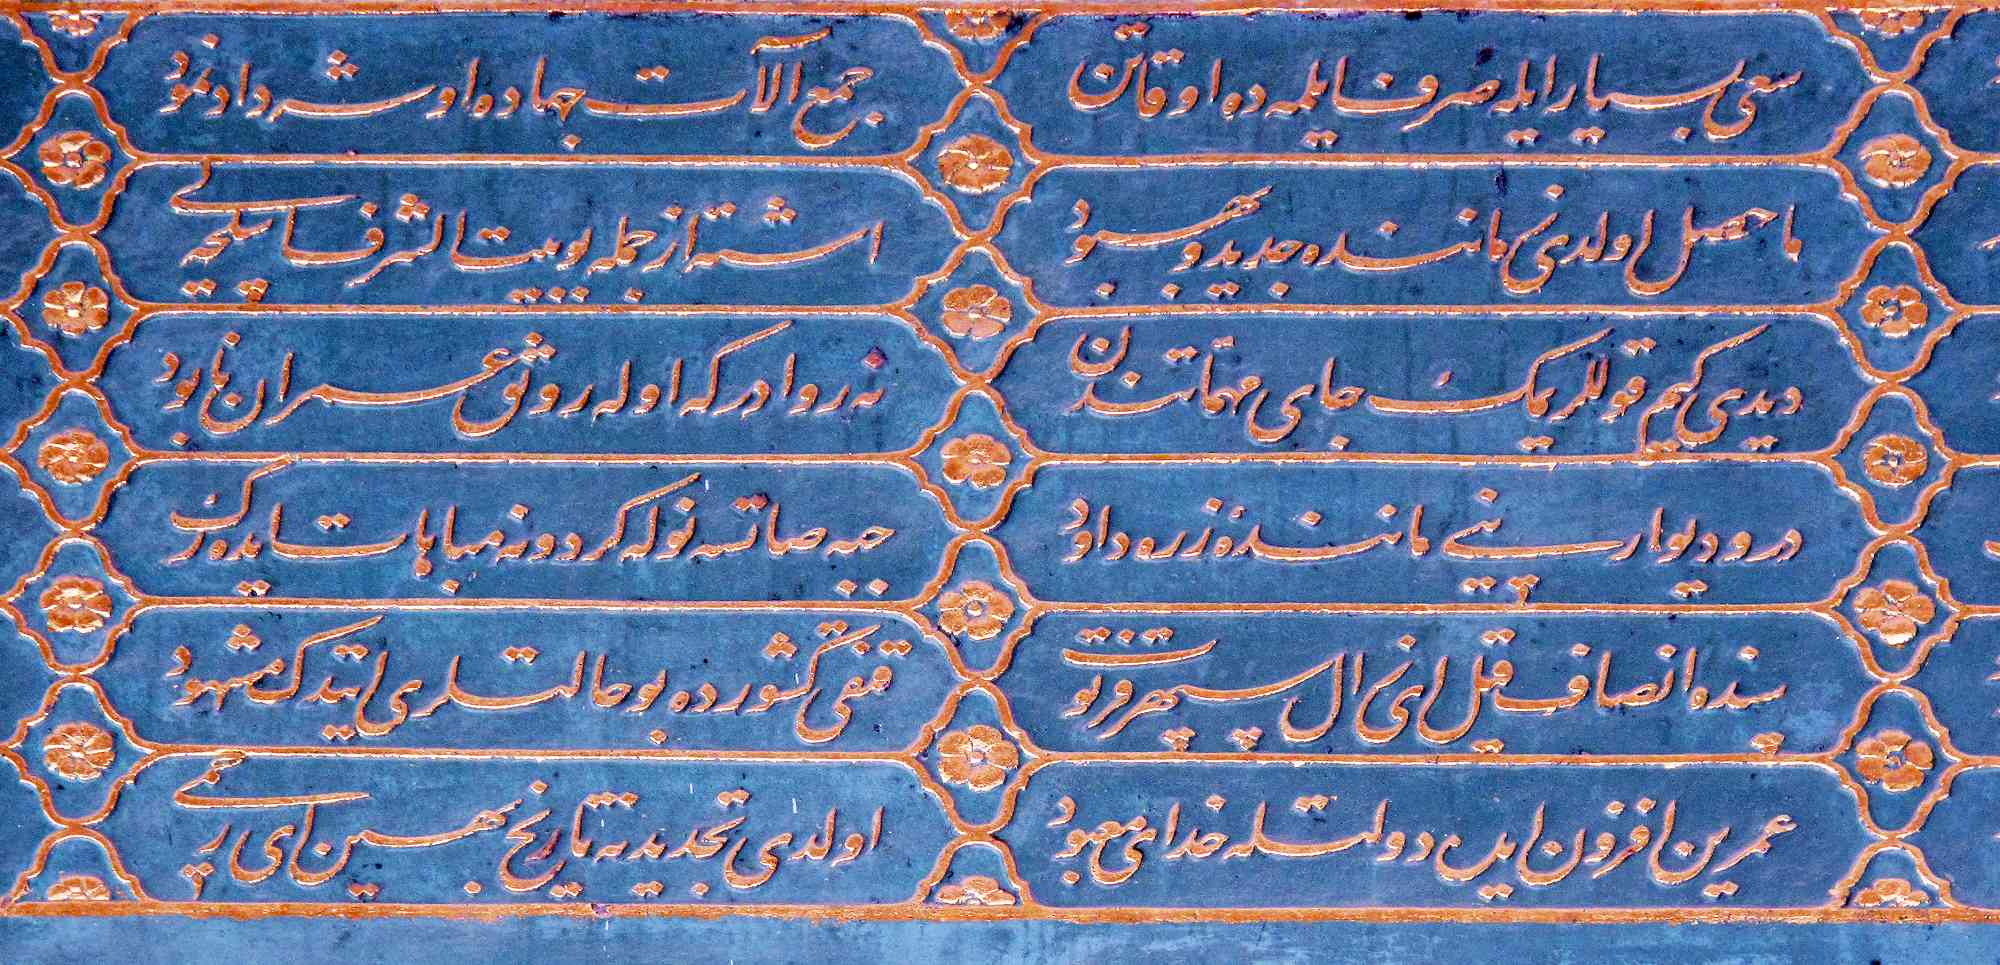 سعی بسیار ایله صرف ایلمه ده اوقاتن
جمع آلات جهاده اوشرداد نمود
ماحصل اولدی ماننده جدید و بهبود
اشته از جمله بو بیت الشرف اسلحه یی
دیدی کیم قوللریمک جای مهماتندن
نه روادر که اوله رونق عمران نابود
در و دیوارینی مانندهٔ زره داود
جبه صاتسه نوله کردونه مباهات ایدرک
سنده انصاف قیل ای ال سپهر فرتوت
قنقی کشورده بو حالتلری ایتدک مشهود
عمرین افزون ایده دولتله خدای معبود
اولدی تجدیدیه تاریخ بهین ای